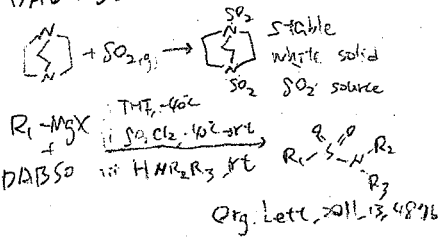 SO2
N
+ SO2(g) → stable
N
white solid
SO2
SO2 source
R1-MgX
+
DABSO
i THF, -40℃
ii SO2Cl2, -40℃→rt
iii HNR2R3, rt
O O
R1 S N R2
R3
Org. Lett., 2011, 13, 4876